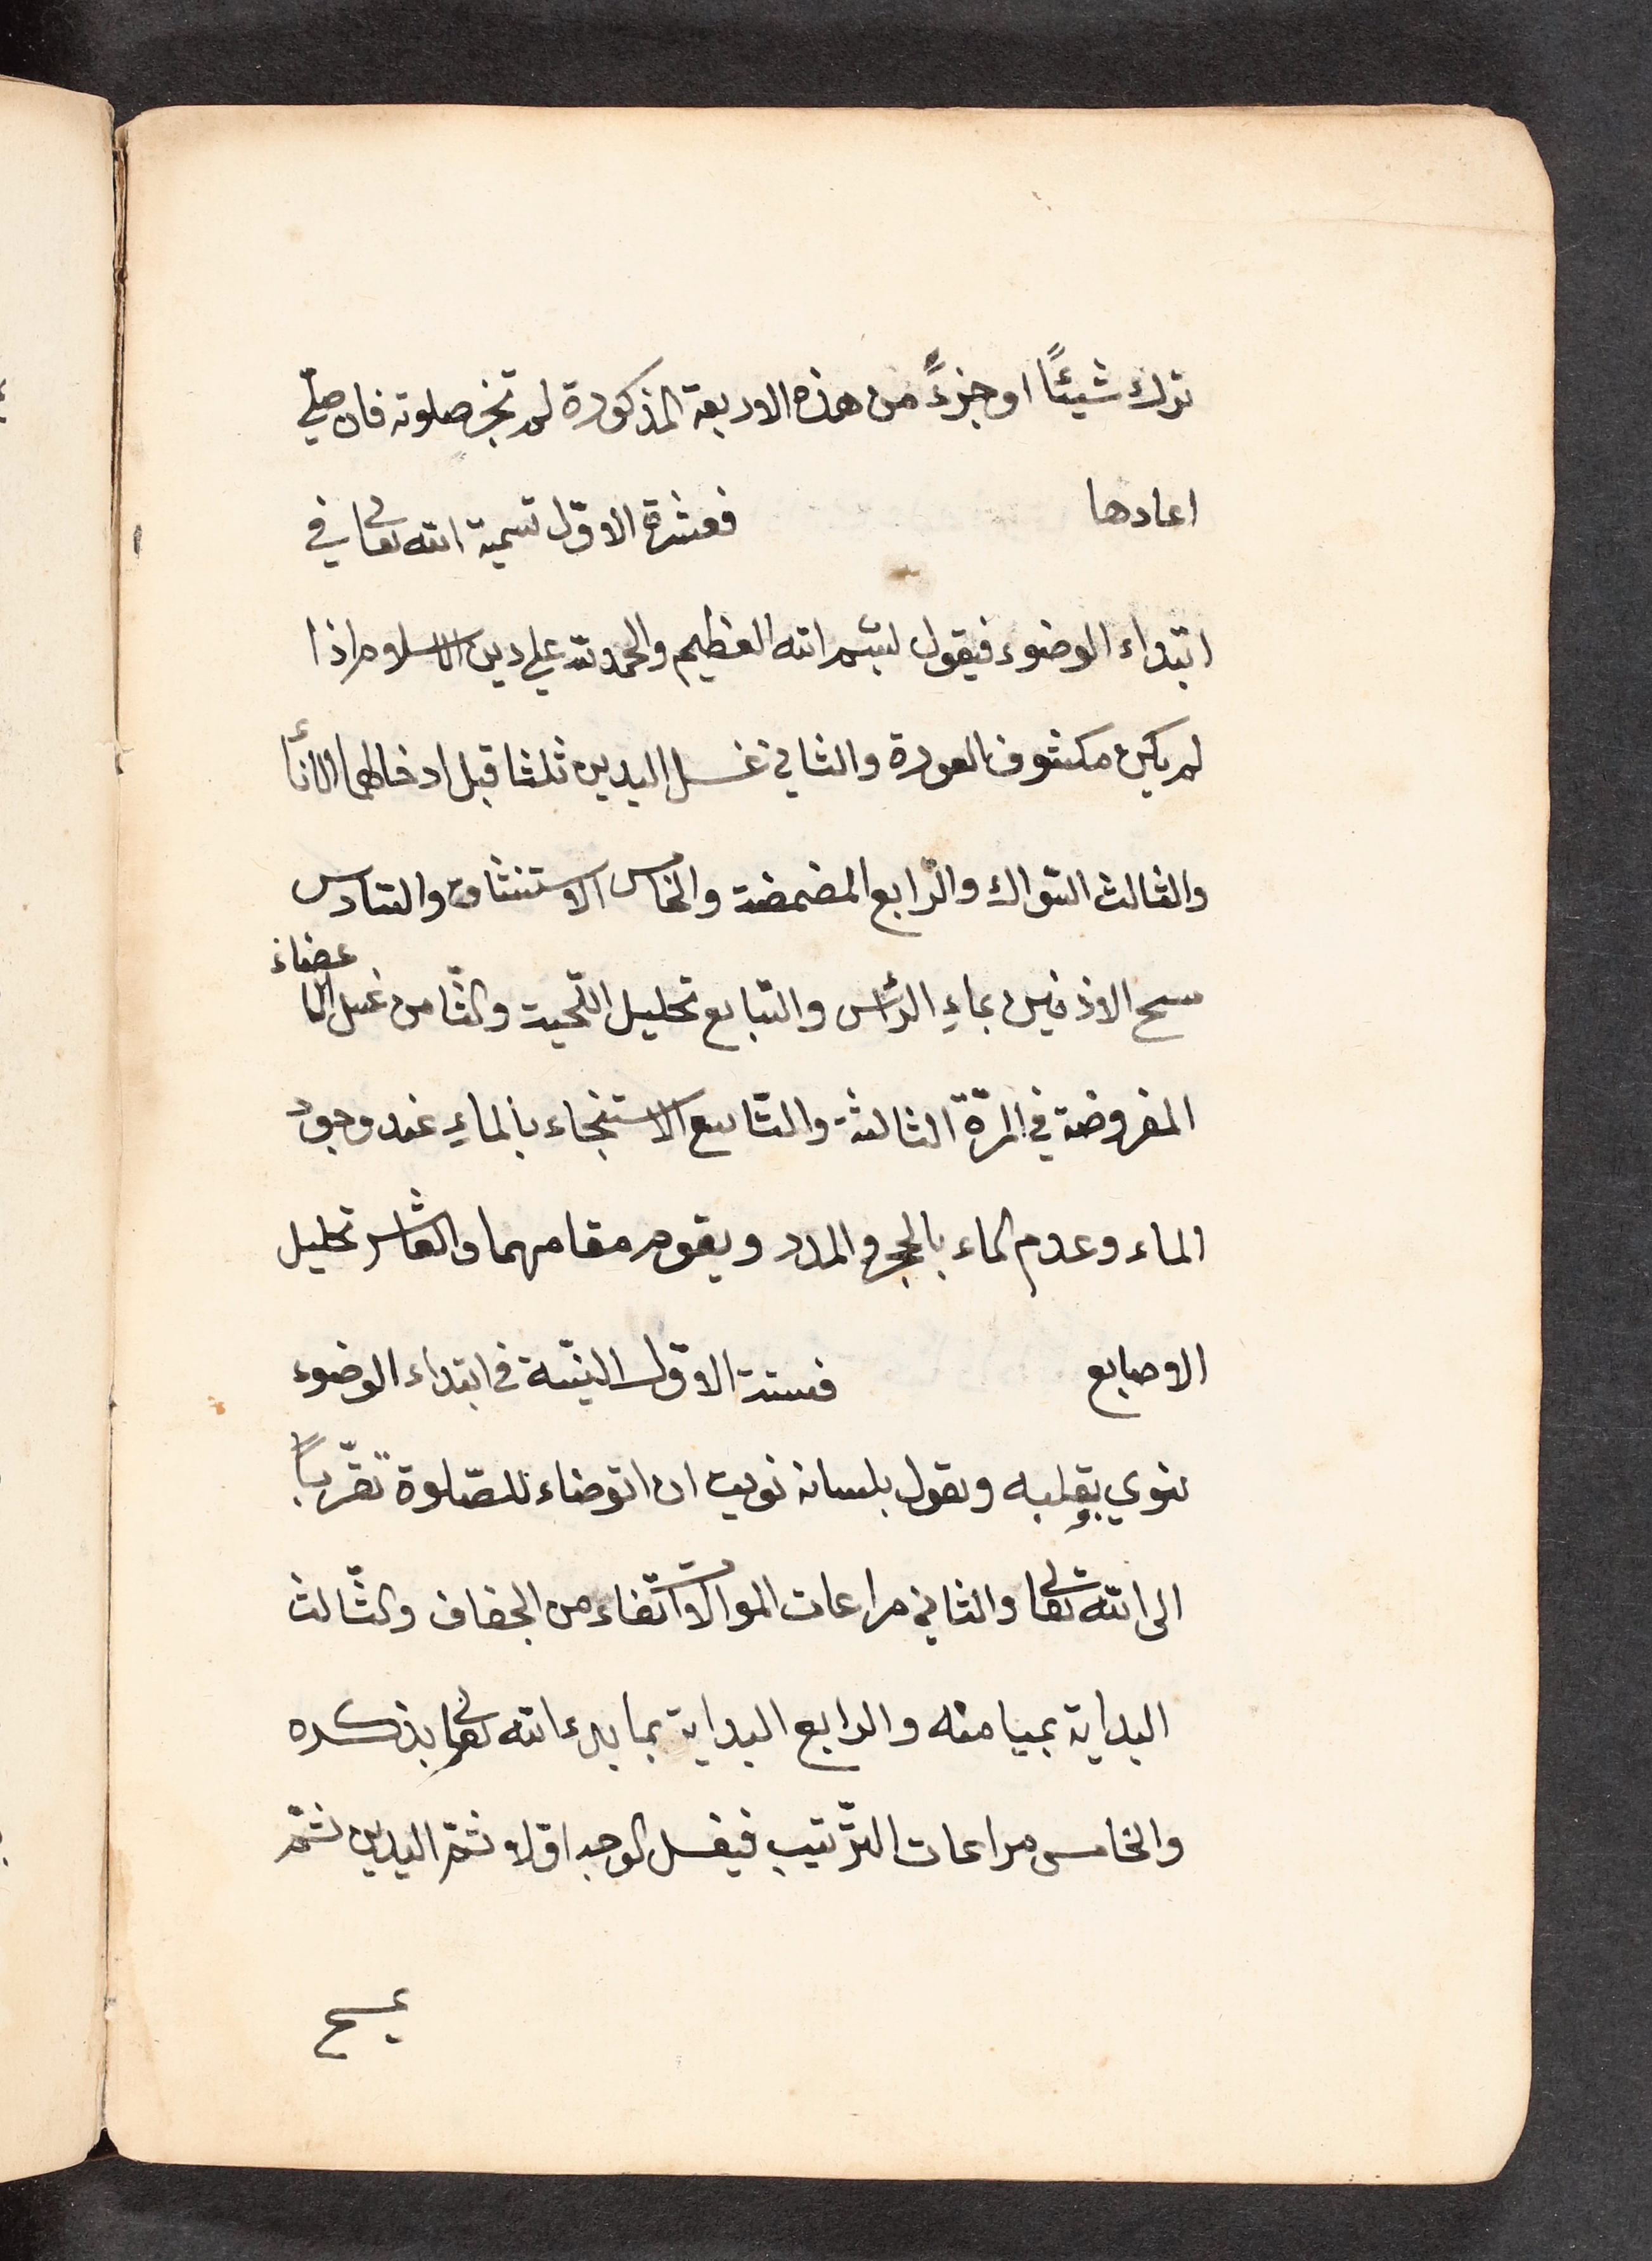 ترك شيئًا او جزءً من هذه الاربعة المذكورة لم تجز صلوته فان صلّي
اعادها فعشرة الاوّل تسمية الله تعالى في
ابتداء الوضوء فيقول بسم الله العظيم والحمد لله علي دين الاسلام اذا
لم يكن مكشوف العورة والثاني غسل اليدين ثلثا قبل ادخالهما الاناء
والثالث السّواك والرّابع المضمضة والخامس الاستنشاق والسّادس
مسح الاذنين بماءِ الرأس والسّابع تخليل اللّحية والثّامن غسل الاعضاء
المفروضة في المرّة الثالثة والتّاسع الاستنجاء بالماءِ عند وجود
الماء وعدم الماء بالحجر والمدر ويقوم مقامهما والعاشر تخليل
الاصابع فستة الاوّل النيّة في ابتداء الوضوء
ينوي بقلبه ويقول بلسانه نويت ان اتوضاء للصّلوة تقرّباً
الى الله تعالى والثاني مراعات الموالات اتقاء من الجفاف والثّالث
البداية بميامنه والرابع البداية بما بدء الله تعالى بذكره
والخامس مراعات التّرتيب فيغسل الوجه اوّلا ثمّ اليدين ثمّ
يمسح